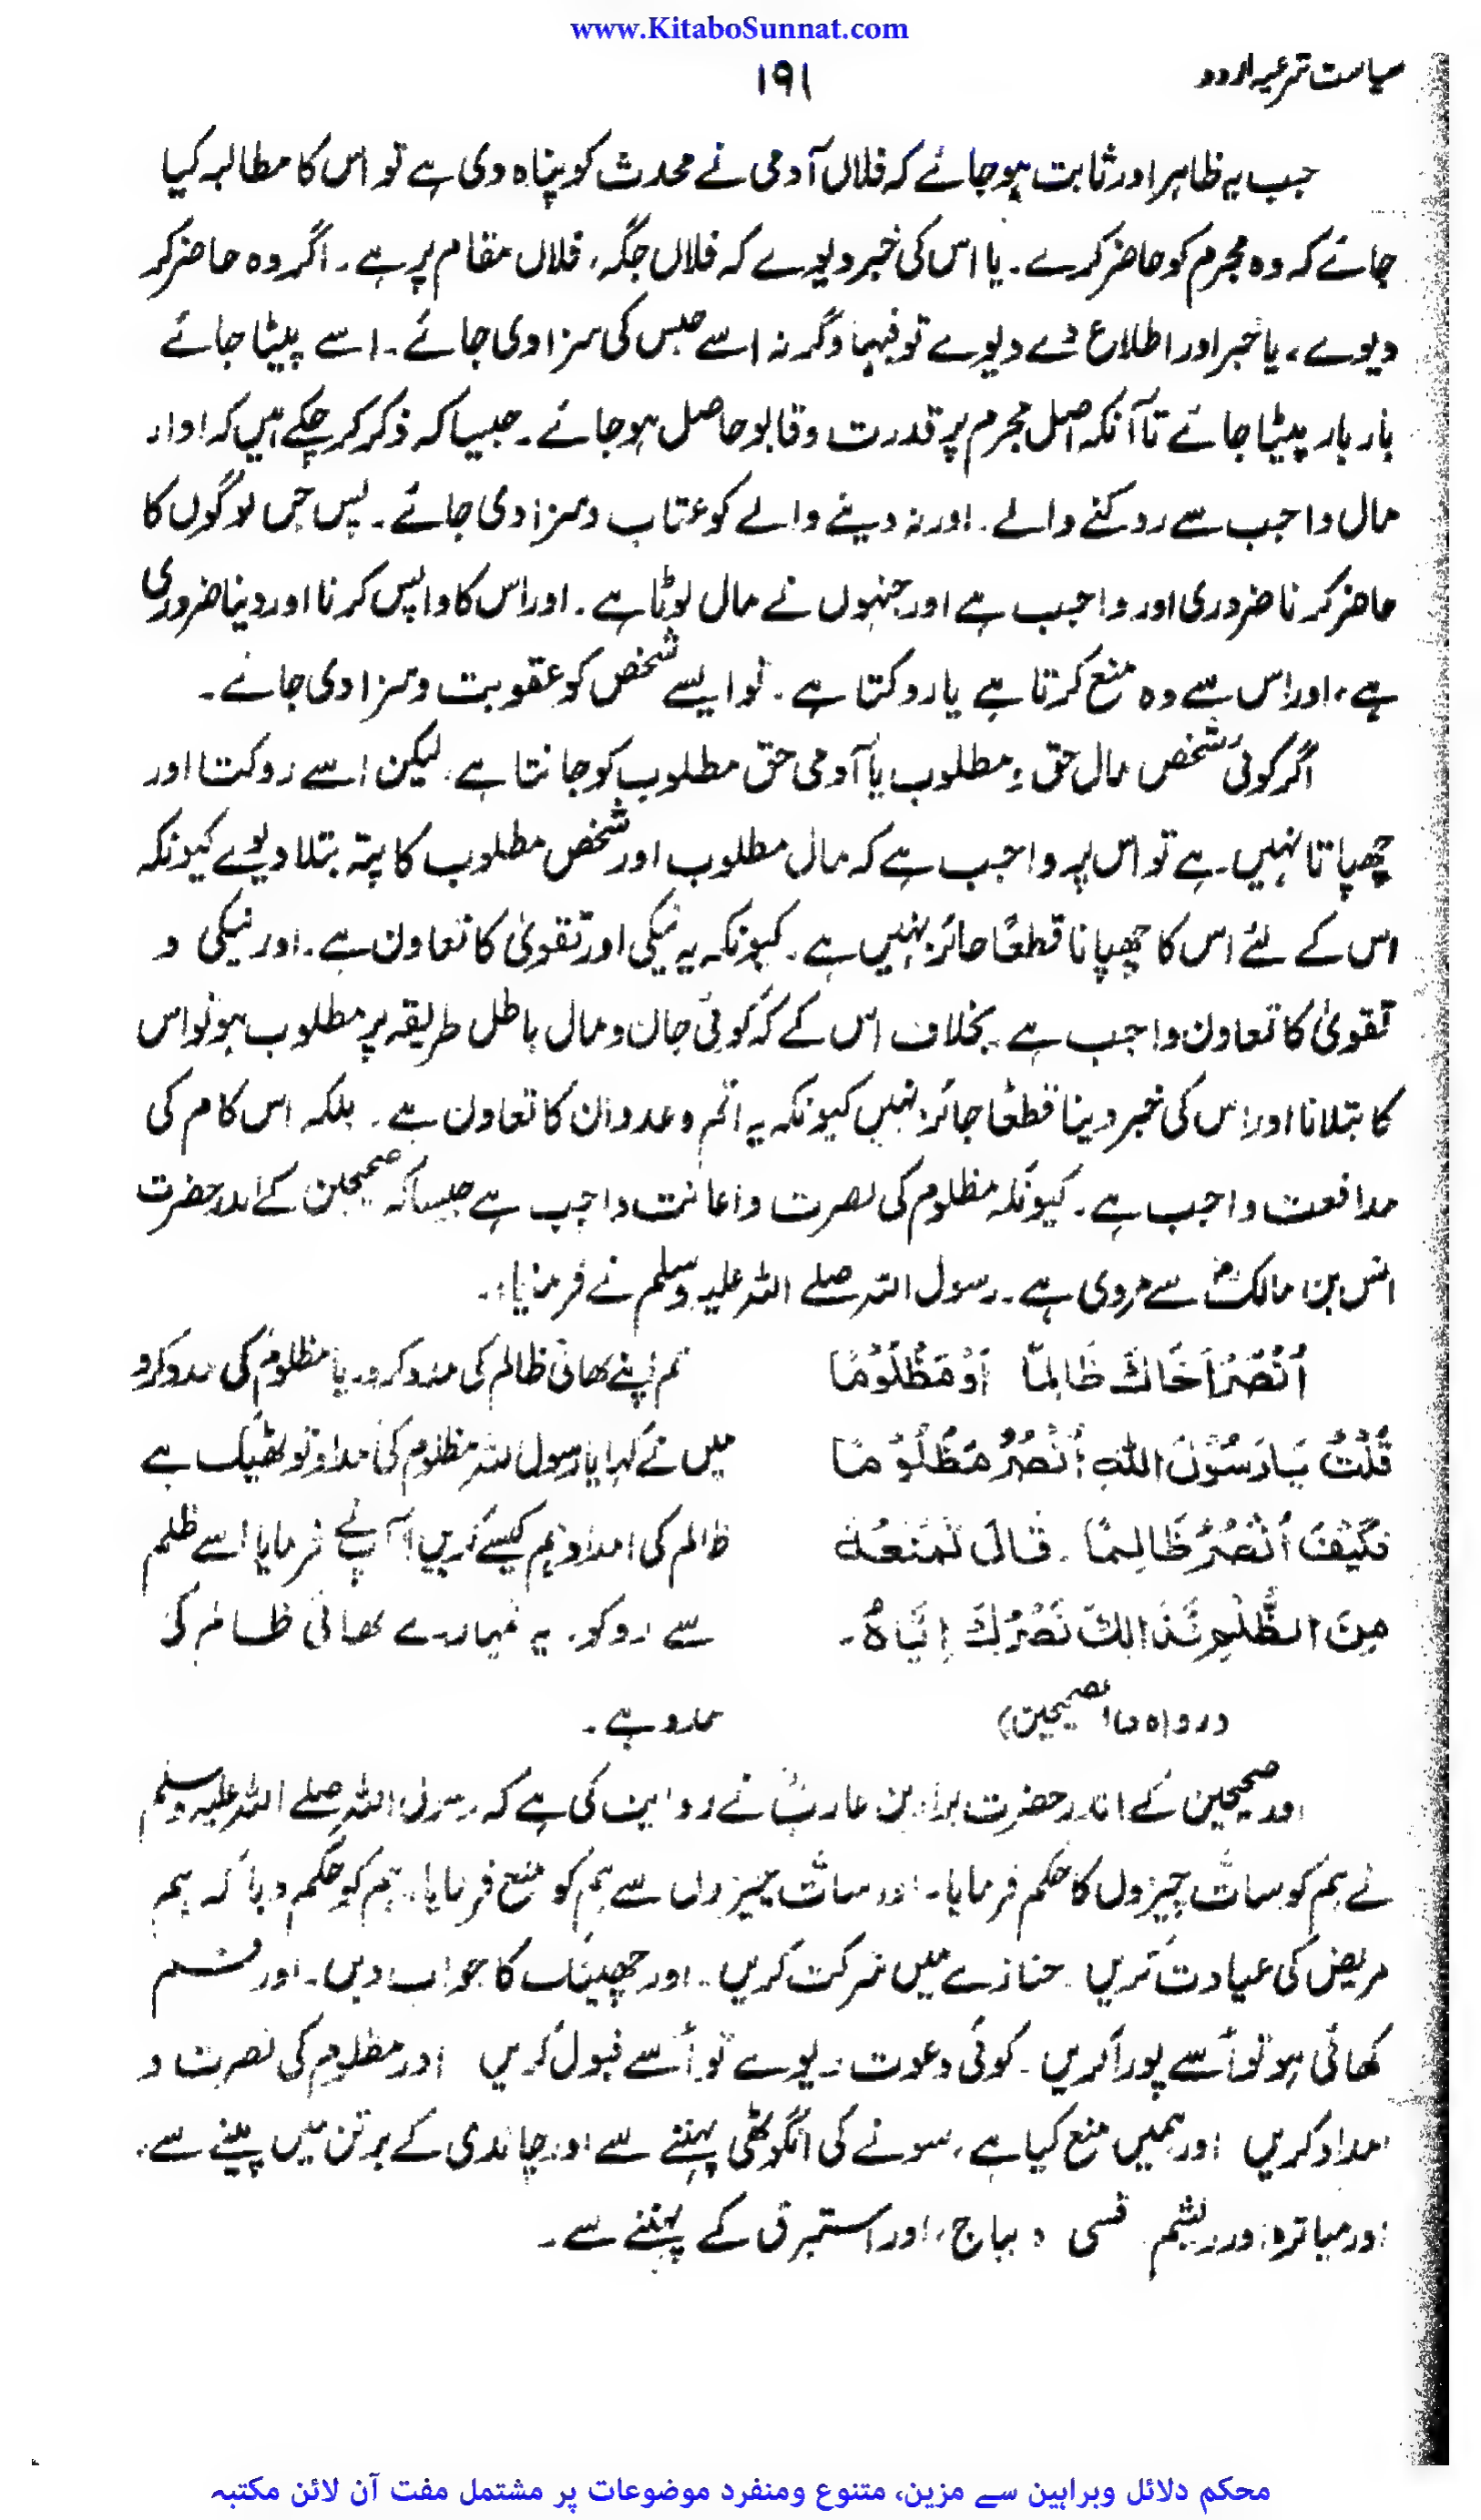 www.KitaboSunnat.com
سیاست شرعیہ اردو
۱۹۱
جب یہ ظاہر اور ثابت ہو جائے کہ فلاں آدمی نے محدث کو پناہ دی ہے تو اس کا مطالبہ کیا
جائے کہ وہ مجرم کو حاضر کرے۔ یا اس کی خبر دیوے کہ فلاں جگہ، فلاں مقام پر ہے۔ اگر وہ حاضر کر
دیوے، یا خبر اور اطلاع دے دیوے تو فبہا وگرنہ اسے حبس کی سزا دی جائے۔ اسے پیٹا جائے
بار بار پیٹا جائے تاآنکہ اصل مجرم پر قدرت و قابو حاصل ہو جائے۔ جیسا کہ ذکر کر چکے ہیں کہ اداء
مال واجب سے روکنے والے۔ اور نہ دینے والے کو عتاب و سزا دی جائے۔ پس جن لوگوں کا
حاضر کرنا ضروری اور واجب ہے اور جنہوں نے مال لوٹا ہے۔ اور اس کا واپس کرنا اور دینا ضروری
ہے، اور اس سے وہ منع کرتا ہے یا روکتا ہے۔ تو ایسے شخص کو عقوبت و سزا دی جائے۔
اگر کوئی شخص مال حق و مطلوب یا آدمی حق مطلوب کو جانتا ہے، لیکن اسے روکتا اور
چھپاتا نہیں ہے تو اس پر واجب ہے کہ مال مطلوب اور شخص مطلوب کا پتہ بتلا دیوے کیونکہ
اس کے لئے اس کا چھپانا قطعًا جائز نہیں ہے۔ کیونکہ یہ نیکی اور تقویٰ کا تعاون ہے۔ اور نیکی و
تقویٰ کا تعاون واجب ہے بخلاف اس کے کہ کوئی جان و مال باطل طریقہ پر مطلوب ہو تو اس
کا بتلانا اور اس کی خبر دینا قطعًا جائز نہیں کیونکہ یہ اثم و عدوان کا تعاون ہے۔ بلکہ اس کام کی
مدافعت واجب ہے۔ کیونکہ مظلوم کی نصرت و اعانت واجب ہے جیسا کہ صحیحین کے اندر حضرت
انس بن مالکؓ سے مروی ہے۔ رسول اللہ صلے اللہ علیہ وسلم نے فرمایا:۔
اُنْصُرْ اَخَاكَ ظَالِمًا اَوْ مَظْلُوْمًا
قُلْتُ یَا رَسُوْلَ اللّٰهِ اَنْصُرُ مَظْلُوْمًا
فَکَیْفَ اَنْصُرُ ظَالِمًا۔ قَالَ تَمْنَعُهٗ
مِنَ الظُّلْمِ فَذَالِكَ نَصْرُكَ اِیَّاهُ۔
(رواہ فی الصحیحین)
تم اپنے بھائی ظالم کی مدد کرو۔ یا مظلوم کی مدد کرو
میں نے کہا یا رسول اللہ مظلوم کی مدد تو ٹھیک ہے
ظالم کی امداد ہم کیسے کریں؟ آپ نے فرمایا اسے ظلم
سے روکو۔ یہ تمہارے بھائی ظالم کی
مدد ہے۔
اور صحیحین کے اندر حضرت براء بن عازبؓ نے روایت کی ہے کہ رسول اللہ صلے اللہ علیہ وسلم
نے ہم کو سات چیزوں کا حکم فرمایا۔ اور سات چیزوں سے ہم کو منع فرمایا۔ ہم کو حکم دیا کہ ہم
مریض کی عیادت کریں۔ جنازے میں شرکت کریں۔ اور چھینک کا جواب دیں۔ اور قسم
کھائی ہو تو اُسے پورا کریں۔ کوئی دعوت دیوے تو اُسے قبول کریں اور مظلوم کی نصرت و
امداد کریں اور ہمیں منع کیا ہے، سونے کی انگوٹھی پہننے سے اور چاندی کے برتن میں پینے سے۔
اور میاثرہ اور ریشم قسی دیباج، اور استبرق کے پہننے سے۔
محکم دلائل وبراہین سے مزین، متنوع ومنفرد موضوعات پر مشتمل مفت آن لائن مکتبہ